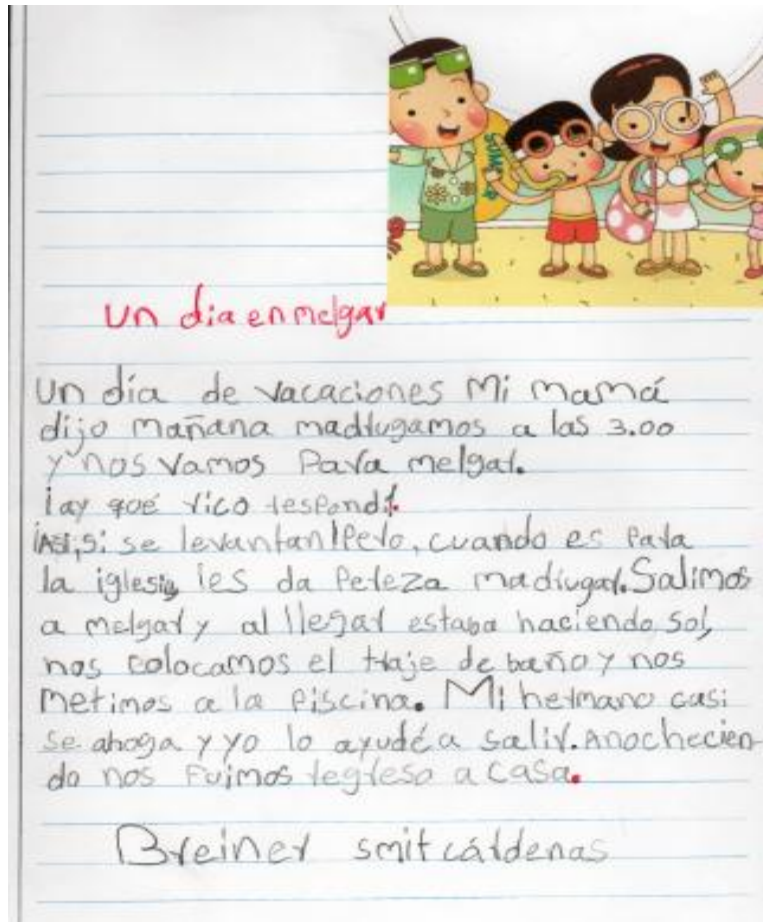 un dia en melgar
Un día de vacaciones Mi mamá
dijo mañana madrugamos a las 3.00
y nos vamos Para melgar.
¡ay qué rico respondí.
¡Así, si se levantan! Pero, cuando es Para
la iglesia les da Pereza madrugar. Salimos
a melgar y al llegar estaba haciendo sol,
nos colocamos el traje de baño y nos
metimos a la Piscina. Mi hermano casi
se ahoga y yo lo ayudé a salir. Anochecien-
do nos Fuimos regreso a casa.
Breiner smit cárdenas